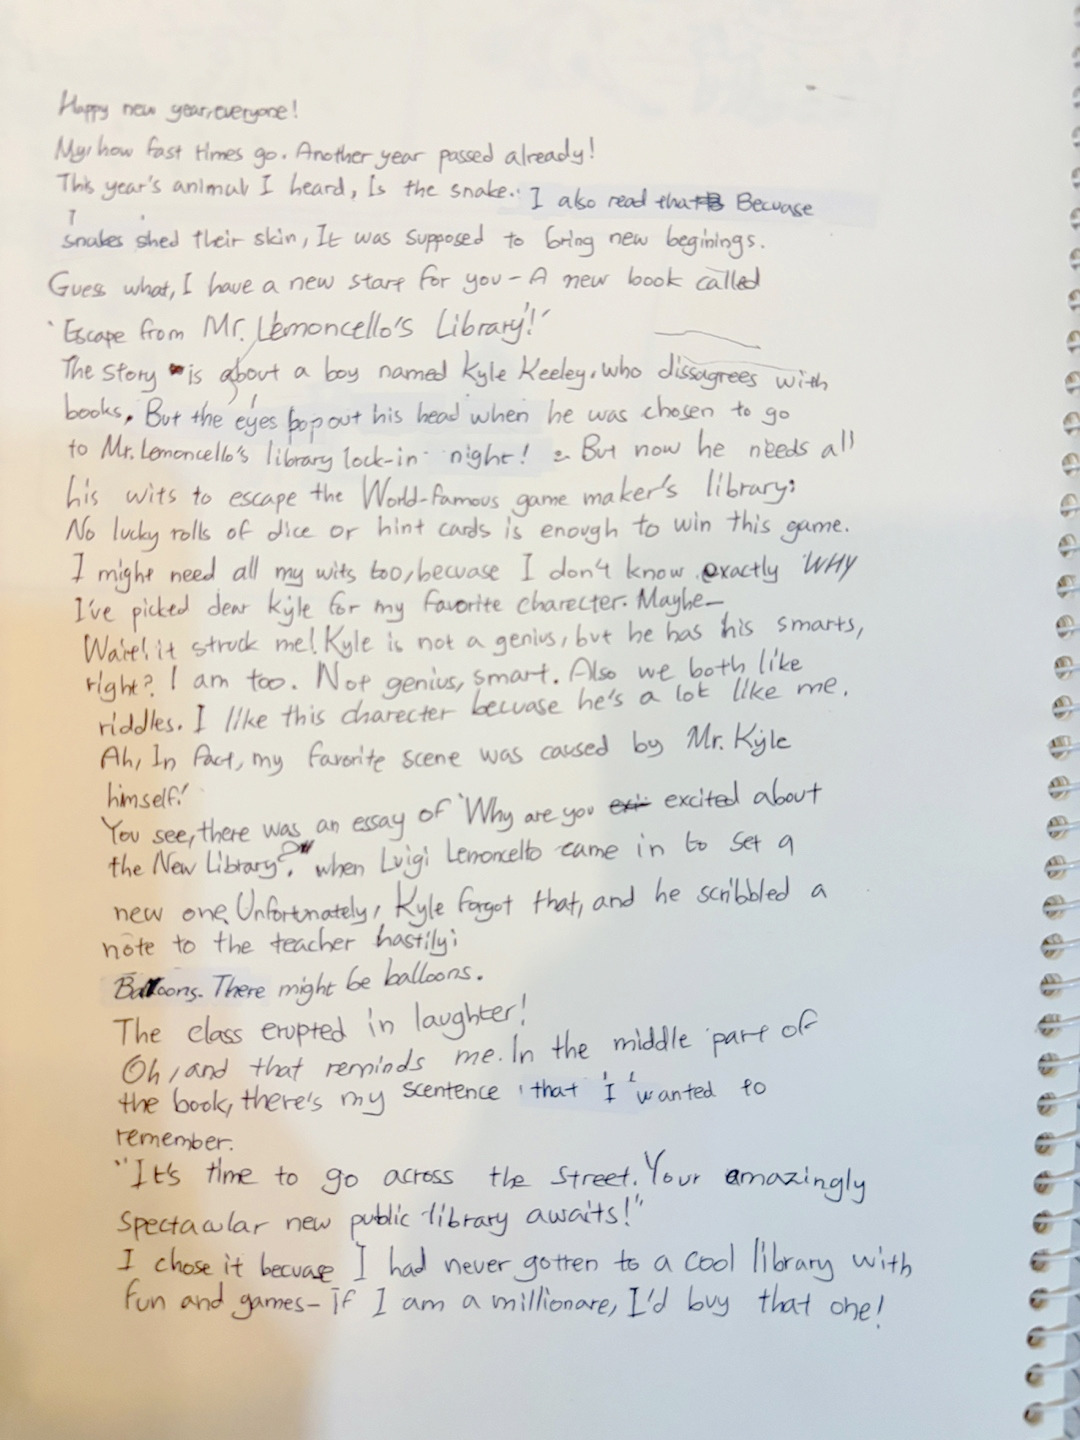 Happy new year, everyone!
My, how fast times go. Another year passed already!
This year's animal I heard, Is the snake. I also read that Becuase
snakes shed their skin, It was supposed to bring new beginings.
Guess what, I have a new start for you - A new book called
'Escape from Mr. Lemoncello's Library!'
The story is about a boy named Kyle Keeley, who dissagrees with
books. But the eyes pop out his head when he was chosen to go
to Mr. Lemoncello's library lock-in night! But now he needs all
his wits to escape the World-famous game maker's library:
No lucky rolls of dice or hint cards is enough to win this game.
I might need all my wits too, becuase I don't know exactly WHY
I've picked dear Kyle for my favorite charecter. Maybe-
Wait! it struck me! Kyle is not a genius, but he has his smarts,
right? I am too. Not genius, smart. Also we both like
riddles. I like this charecter becuase he's a lot like me.
Ah, In fact, my favorite scene was caused by Mr. Kyle
himself!
You see, there was an essay of 'Why are you excited about
the New Library?' when Luigi Lemoncello came in to set a
new one. Unfortunately, Kyle forgot that, and he scribbled a
note to the teacher hastily;
Balloons. There might be balloons.
The class erupted in laughter!
Oh, and that reminds me. In the middle part of
the book, there's my scentence that I wanted to
remember.
"It's time to go across the street. Your amazingly
spectacular new public library awaits!"
I chose it becuase I had never gotten to a cool library with
fun and games- if I am a millionare, I'd buy that one!